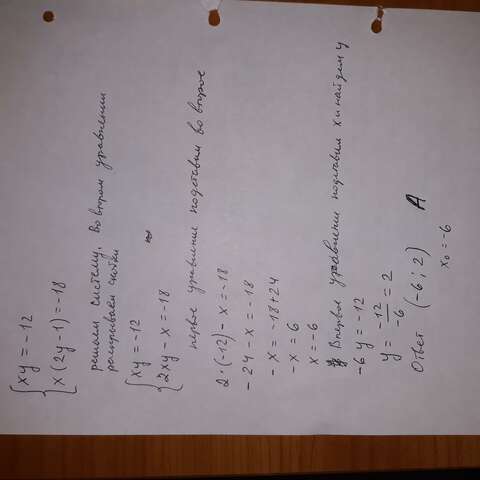 { xy = -12
{ x(2y-1) = -18
решаем систему. Во втором уравнении
раскрываем скобки
{ xy = -12
{ 2xy - x = -18
первое уравнение подставим во второе
2·(-12) - x = -18
-24 - x = -18
-x = -18+24
-x = 6
x = -6
В первое уравнение подставим x и найдем y
-6y = -12
y = -12/-6 = 2
Ответ (-6; 2) A
x₀ = -6